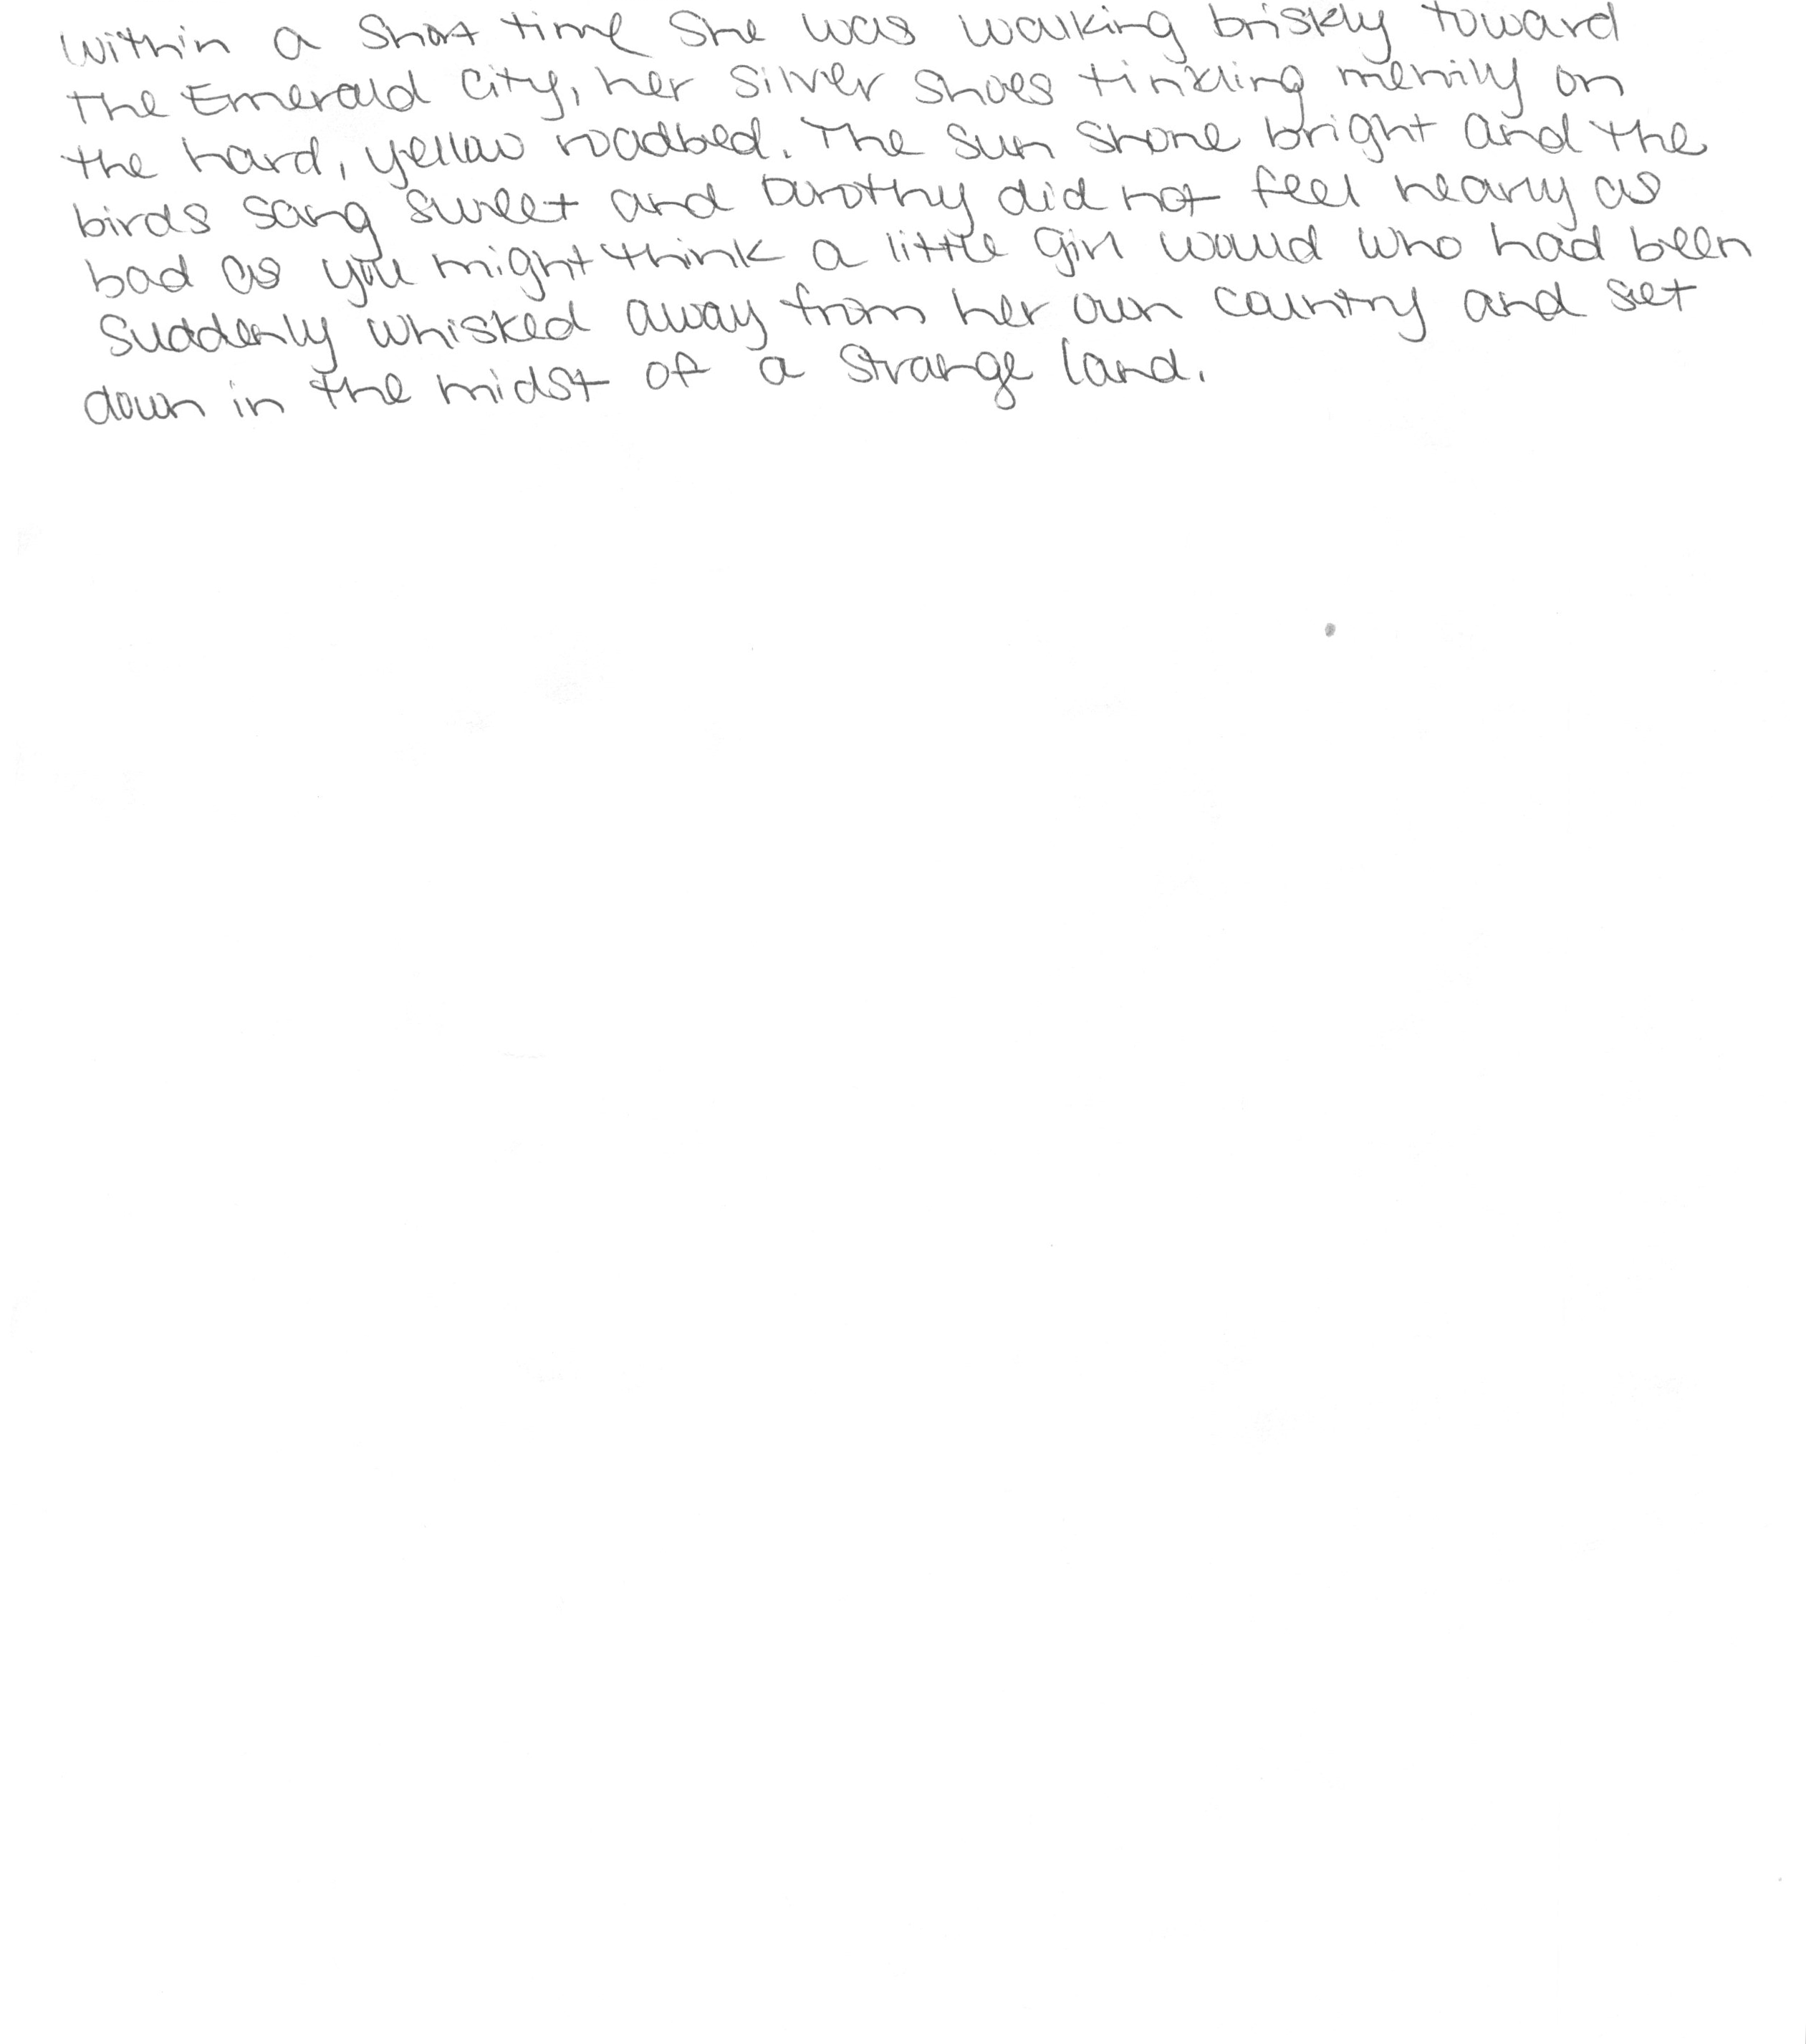 within a short time she was walking briskly toward
the Emerald City, her silver shoes tinkling merrily on
the hard, yellow roadbed. The sun shone bright and the
birds sang sweet and Dorothy did not feel nearly as
bad as you might think a little girl would who had been
suddenly whisked away from her own country and set
down in the midst of a strange land.